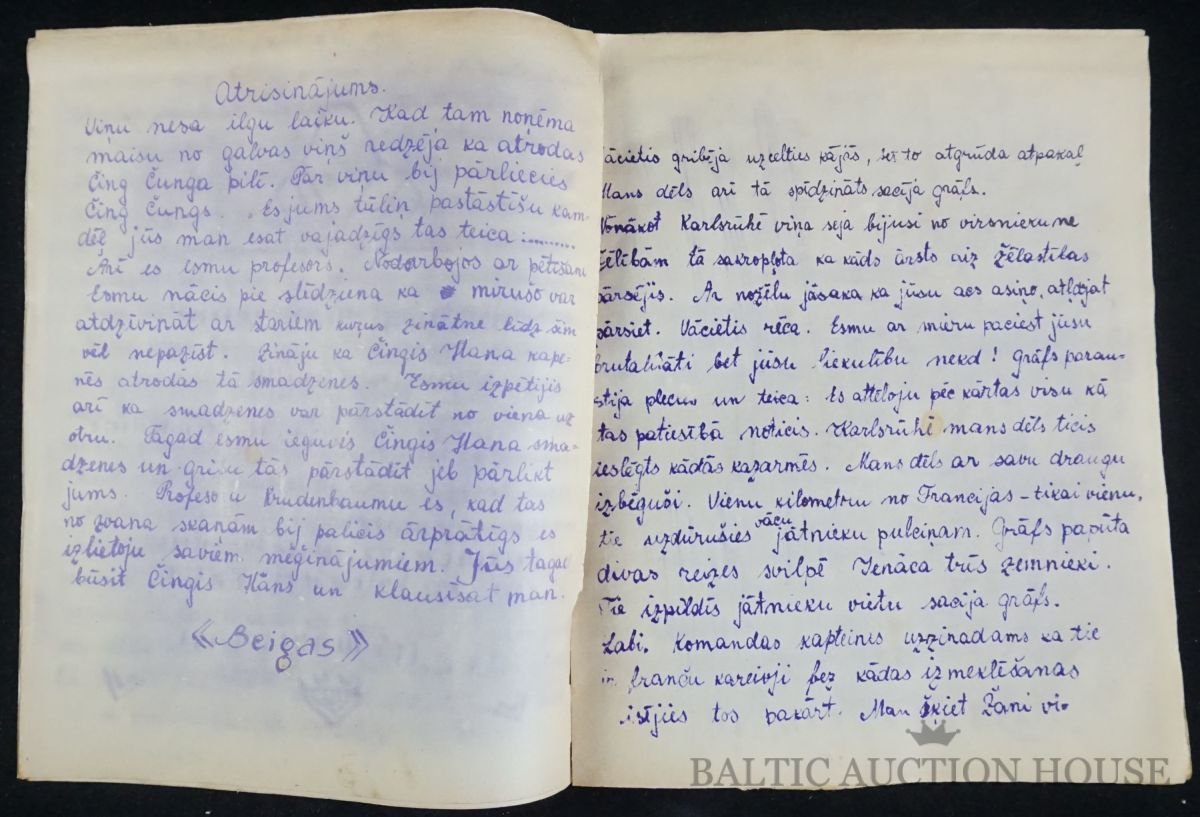 Atrisinājums.
Viņu nesa ilgu laiku. Kad tam noņēma
maisu no galvas viņš redzēja ka atrodas
Čing Čunga pilī. Pār viņu bij pārliecies
Čing Čungs. Es jums tūliņ pastāstīšu kam-
dēļ jūs man esat vajadzīgs tas teica:.........
Arī es esmu profesors. Nodarbojos ar pētīšanu
Esmu nācis pie slēdziena ka mirušo var
atdzīvināt ar stariem kuŗus zinātne līdz šim
vēl nepazīst. Zināju ka Čingis Hana kape-
nēs atrodas tā smadzenes. Esmu izpētijis
arī ka smadzenes var pārstādīt no viena uz
otru. Tagad esmu ieguvis Čingis Hana sma-
dzenes un gribu tās pārstādīt jeb pārlikt
jums. Profesoru Krudenhaumu es, kad tas
no zvana skaņām bij palicis ārprātīgs es
izlietoju saviem mēģinājumiem. Jūs tagad
būsit Čingis Hāns un klausīsat man.
«Beigas»
ācietis gribēja uzcelties kājās, bet to atgrūda atpakaļ
Mans dēls arī tā spīdzināts sacīja grāfs.
Nonākot Karlsrūhē viņa seja bijusi no virsnieku ne
žēlībām tā sakropļota ka kāds ārsts aiz žēlastības
pārsējis. Ar nožēlu jāsaka ka jūsu acs asiņo, atļaujat
pārsiet. Vācietis rēca. Esmu ar mieru paciest jūsu
brutalitāti bet jūsu liekulību nekad! Grāfs parau-
stīja plecus un teica: Es attēloju pēc kārtas visu kā
tas patiesībā noticis. Karlsrūhē mans dēls ticis
ieslēgts kādās kazarmēs. Mans dēls ar savu draugu
izbēguši. Vienu kilometru no Francijas – tikai vienu,
tie uzdūrušies vācu jātnieku pulciņam. Grāfs papūta
divas reizes svilpē Ienāca trīs zemnieki.
Tie izpildīs jātnieku vietu sacīja grāfs.
Labi. Komandas kapteines uzzinādams ka tie
ir franču kareivji bez kādas izmeklēšanas
licis tos pakārt. Man šķiet Žani vi-
BALTIC AUCTION HOUSE